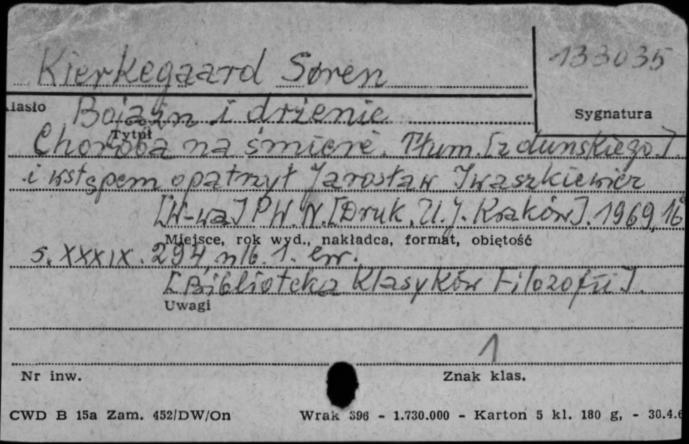 133035
Kierkegaard Søren
Hasło
Bojaźń i drżenie
Sygnatura
Tytuł
Choroba na śmierć. Tłum. [z duńskiego]
i wstępem opatrzył Jarosław Iwaszkiewicz
[W-wa] PWN. [Druk. U.J. Kraków]. 1969, 16
Miejsce, rok wyd., nakładca, format, objętość
s. XXXIX. 294, nlb. 1. err.
[Biblioteka Klasyków Filozofii].
Uwagi
1
Nr inw.
Znak klas.
CWD B 15a Zam. 452/DW/On
Wrak 396 - 1.730.000 - Karton 5 kl. 180 g, - 30.4.6